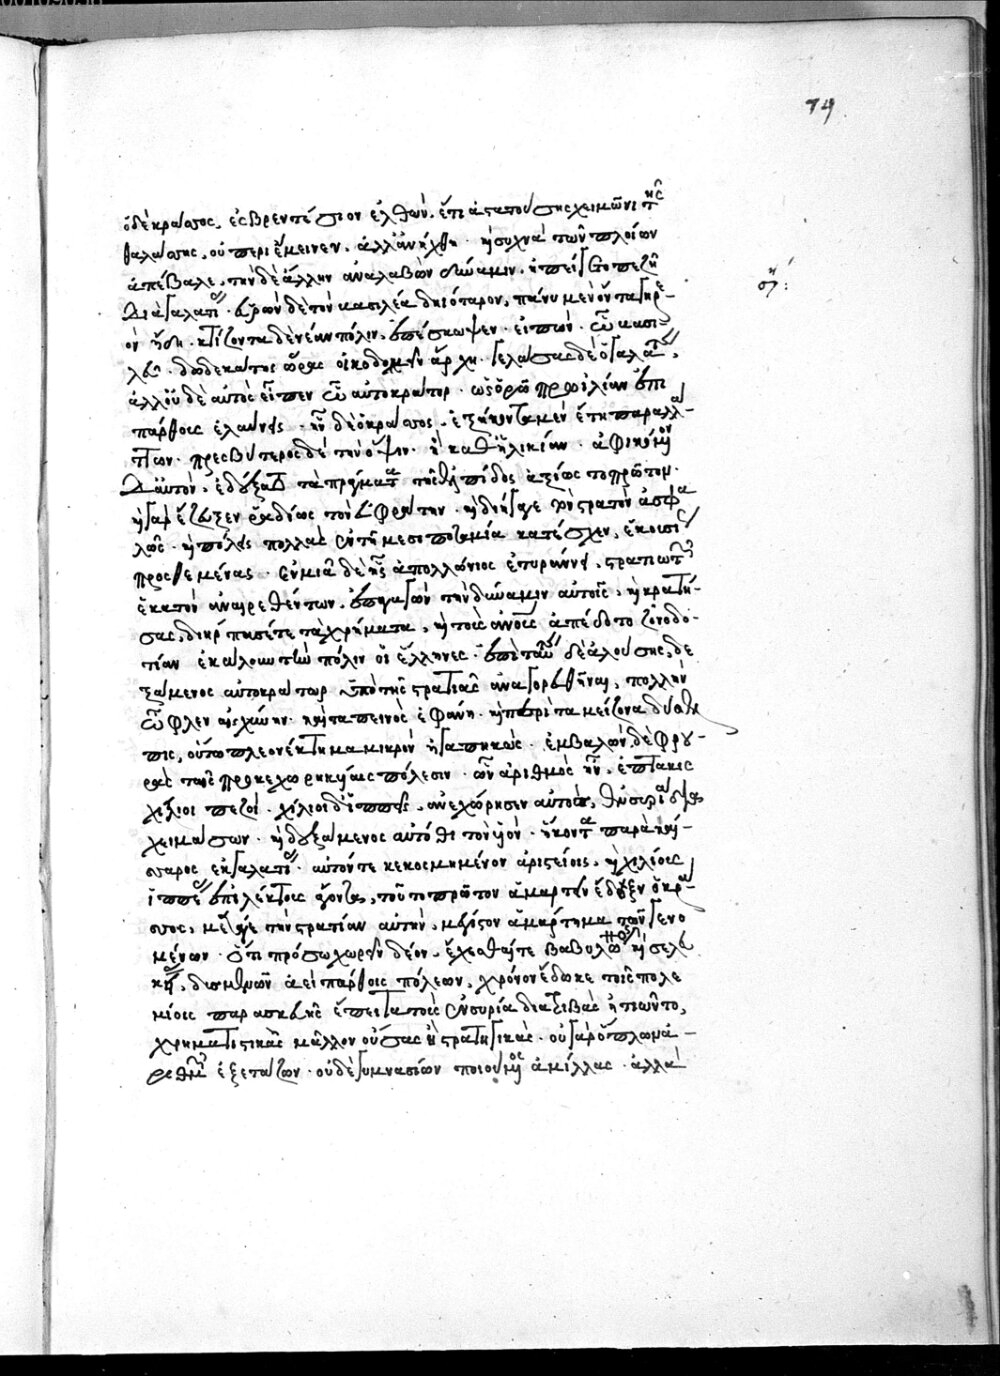 74
ὁ δὲ κράσσος, ἐς βρεντέσιον ἐλθών. ἔτι ἀστατούσης χειμῶνι τῆς
θαλάσσης, οὐ περιέμεινεν. ἀλλ' ἀνήχθη. καὶ συχνὰ τῶν πλοίων
ἀπέβαλε. τὴν δὲ ἄλλην ἀναλαβὼν δύναμιν. ἠπείγετο πεζῇ
διὰ γαλατίας. εὑρὼν δὲ τὸν βασιλέα δηιόταρον, πάνυ μὲν ὄντα γηρ-
ὸν ἤδη. κτίζοντα δὲ νέαν πόλιν. ἐπέσκωψεν. εἰπών. ὦ βασι-
λεῦ. δωδεκάτης ὥρας οἰκοδομεῖν ἄρχῃ. γελάσας δὲ ὁ γαλάτης,
ἀλλ' οὐδὲ αὐτὸς εἶπεν ὦ αὐτοκράτορ. ὡς ὁρῶ πρωὶ λίαν ἐπὶ
πάρθοις ἐλαύνεις. ἦν δὲ ὁ κράσσος. ἑξήκοντα μὲν ἔτη παραλλάτ-
των. πρεσβύτερος δὲ τὴν ὄψιν. ἢ καθ' ἡλικίαν. ἀφικόμενον
δ' αὐτόν. ἐδέξατο τὰ πράγματα τῆς ἐλπίδος ἀξίως τοπρῶτον.
καὶ γὰρ ἔζευξεν ῥαδίως τὸν εὐφράτην. καὶ διήγαγε τὸν στρατὸν ἀσφα
λῶς. καὶ πόλεις πολλὰς ἐν τῇ μεσοποταμία κατέσχεν, ἑκουσίως
προσθεμένας. ἐν μιᾷ δὲ ἧς ἀπολλώνιος ἐτυράννει, στρατιωτῶν
ἑκατὸν ἀναιρεθέντων. ἐπαγαγὼν τὴν δύναμιν αὐτοῖς. καὶ κρατή-
σας, διήρπασέ τε τὰ χρήματα, καὶ τοὺς ἀνθρώπους ἀπέδοτο ζηνοδο-
τίαν ἐκάλουν τὴν πόλιν οἱ ἕλληνες. ἐπὶ ταύτης δὲ ἁλούσης, δε
ξάμενος αὐτοκράτωρ ὑπὸ τῆς στρατιᾶς ἀναγορευθῆναι, πολλὴν
ὦφλεν αἰσχύνην. καὶ ταπεινὸς ἐφάνη. καὶ περὶ τὰ μείζονα δύσελ
πις, οὕτω πλεονέκτημα μικρὸν ἠγαπηκώς. ἐμβαλὼν δὲ φρου-
ρὰς ταῖς προσκεχωρηκυίαις πόλεσιν. ὧν ἀριθμὸς ἦν. ἑπτάκις
χίλιοι πεζοί. χίλιοι δ' ἱππεῖς. ἀνεχώρησεν αὐτὸς, ἐν συρία δι
χειμάσων. καὶ δεξάμενος αὐτόθι τὸν υἱόν. ἥκοντα παρὰ καί-
σαρος ἐκ γαλατίας. αὐτόν τε κεκοσμημένον ἀριστείοις. καὶ χιλίους
ἱππεῖς ἐπιλέκτους ἄγοντα, τοῦτο πρῶτον ἁμαρτεῖν ἔδοξεν ὁ κράσ-
σος. μετά γε τὴν στρατίαν αὐτὴν. μέγιστον ἁμάρτημα τῶν γενο
μένων. ὅτι πρόσω χωρεῖν δέον. ἔχεσθαί τε βαβυλῶνος καὶ σελευ
κείας, δυσμενῶν ἀεὶ πάρθοις πόλεων. χρόνον ἔδωκε τοῖς πολε
μίοις παρασκευῆς ἔπειτα τὰς ἐν συρία διατριβὰς ᾐτιῶντο,
χρηματιστικὰς μᾶλλον οὔσας ἢ στρατηγικὰς. οὐ γὰρ ὅπλων ἀ-
ριθμὸν ἐξετάζων. οὐδὲ γυμνασίων ποιούμενος ἁμίλλας. ἀλλὰ